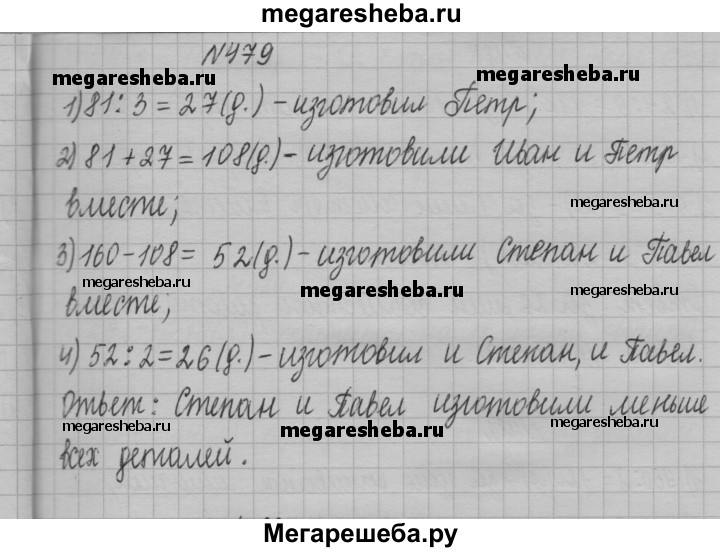 megaresheba.ru
№479
megaresheba.ru megaresheba.ru
1) 81 : 3 = 27 (д.) - изготовил Петр;
2) 81 + 27 = 108 (д.) - изготовили Иван и Петр
вместе; megaresheba.ru
3) 160 - 108 = 52 (д.) - изготовили Степан и Павел
megaresheba.ru megaresheba.ru megaresheba.ru
вместе;
4) 52 : 2 = 26 (д.) - изготовил и Степан, и Павел.
Ответ: Степан и Павел изготовили меньше
megaresheba.ru megaresheba.ru megaresheba.ru
всех деталей.
Мегарешеба.ру